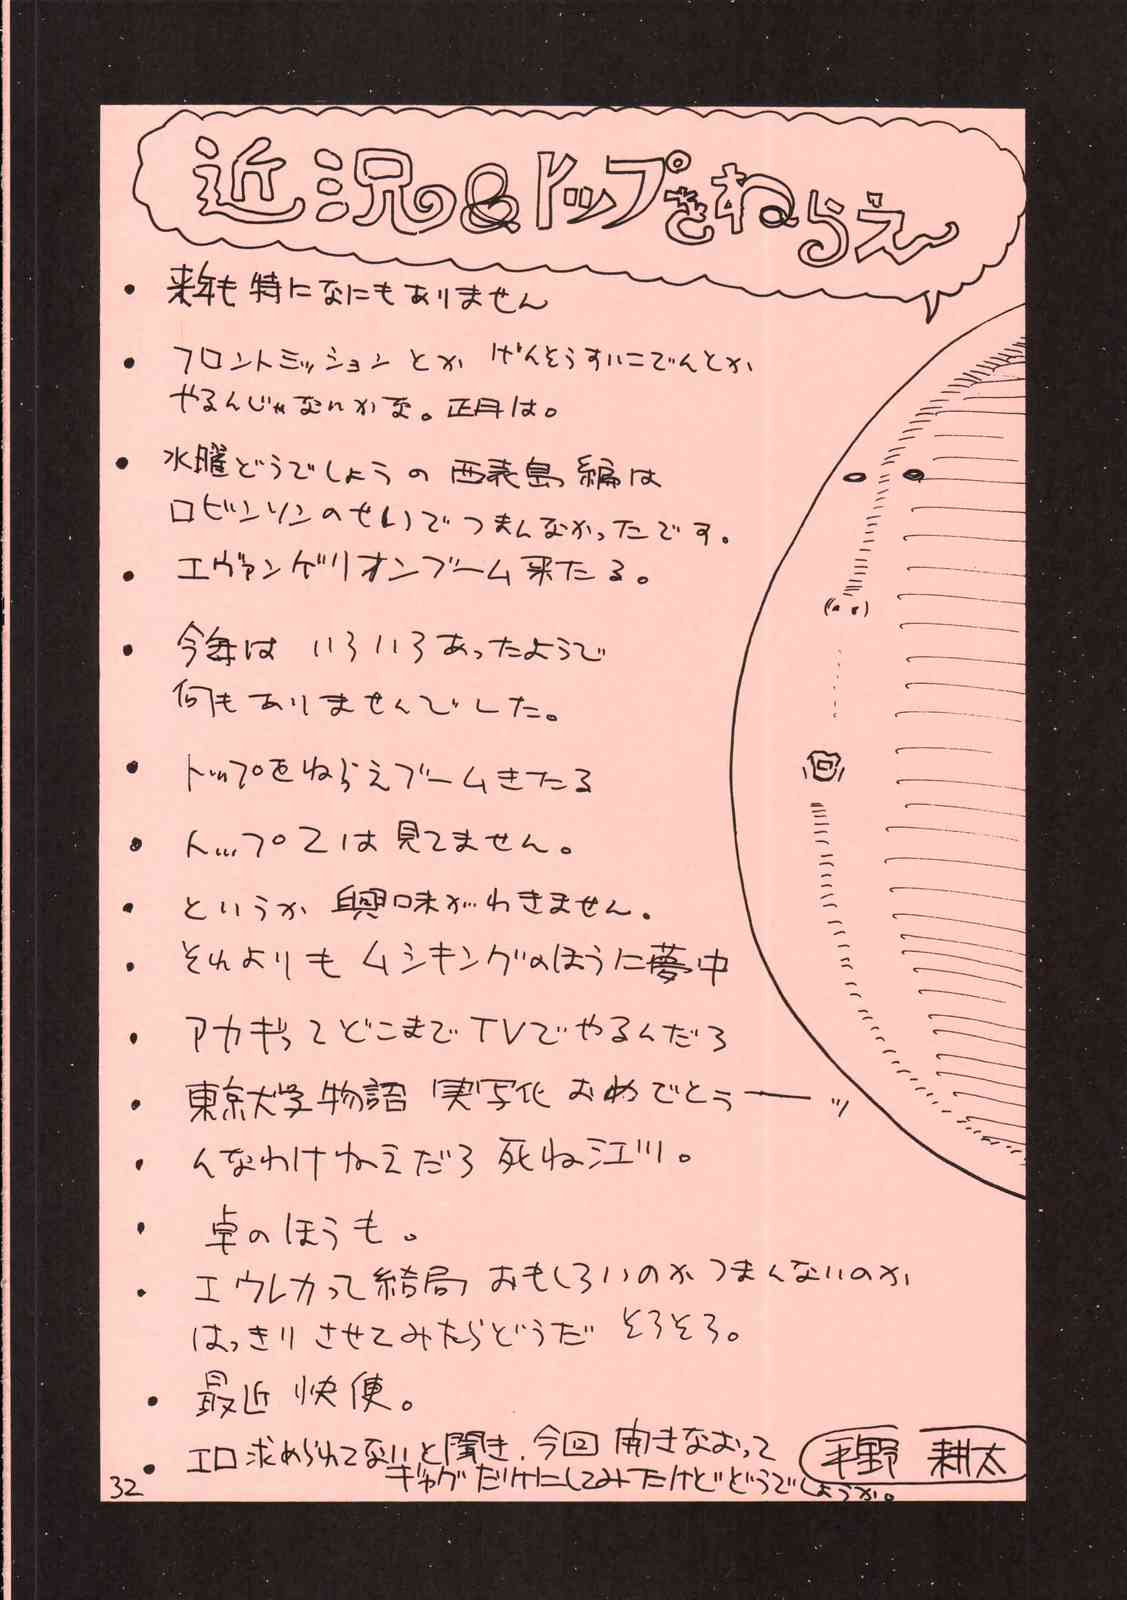 近況の&トップをねらえ〜
・来年も特になにもありません
・フロントミッションとか げんそうすいこでんとか
やるんじゃないかな。正月は。
・水曜どうでしょうの西表島編は
ロビンソンのせいでつまんなかったです。
・エヴァンゲリオンブーム来たる。
・今年は いろいろあったようで
何もありませんでした。
・トップをねらえブームきたる
・トップ2は見てません。
・というか 興味がわきません。
・それよりも ムシキングのほうに夢中
・アカギってどこまでTVでやるんだろ
・東京大学物語 実写化 おめでとうーーッ
・んなわけねえだろ 死ね江川。
・卓のほうも。
・エウレカって結局 おもしろいのかつまんないのか
はっきりさせてみたらどうだ そろそろ。
・最近 快便。
・エロ求められてないと聞き、今回 開きなおって
ギャグだけにしてみたけどどうでしょうか。
平野 耕太
32